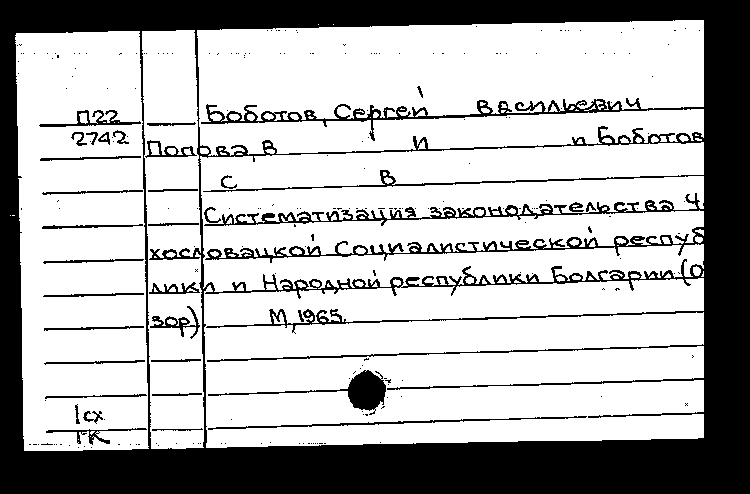 П22 Боботов, Сергей Васильевич
2742 Попова, В И и Боботов
С В
Систематизация законодательства Ч
хословацкой Социалистической респуб
лики и Народной республики Болгарии (О
зор) М, 1965.
1сх
1К